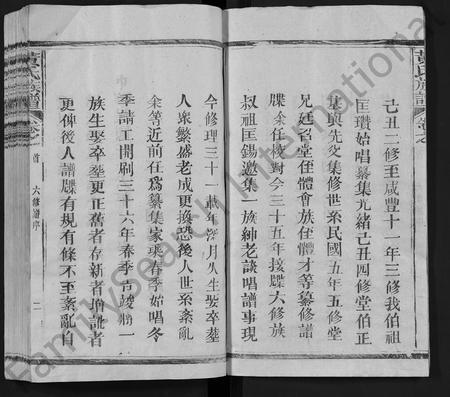 己丑二修至咸豐十一年三修我伯祖
匡瓚始唱纂集光緒己丑四修堂伯正
基與先父集修世系民國五年五修堂
兄廷召堂侄體會族侄體才等纂修譜
牒余任校對今三十五年接牒六修族
叔祖匡錫邀集一族紳老談唱譜事現
今修理三十一載年深月久生娶卒塟
人衆繁盛老成更換恐後人世系紊亂
余等近前任為纂集家乘春季始唱冬
季請工開刷三十六年春季告竣將一
族生娶卒塟更正舊者存新者增訛者
更俾後人譜牒有規有條不至紊亂自
黃氏族譜
卷之首
六修譜序
二
黃氏族譜
卷之
FamilySearch International